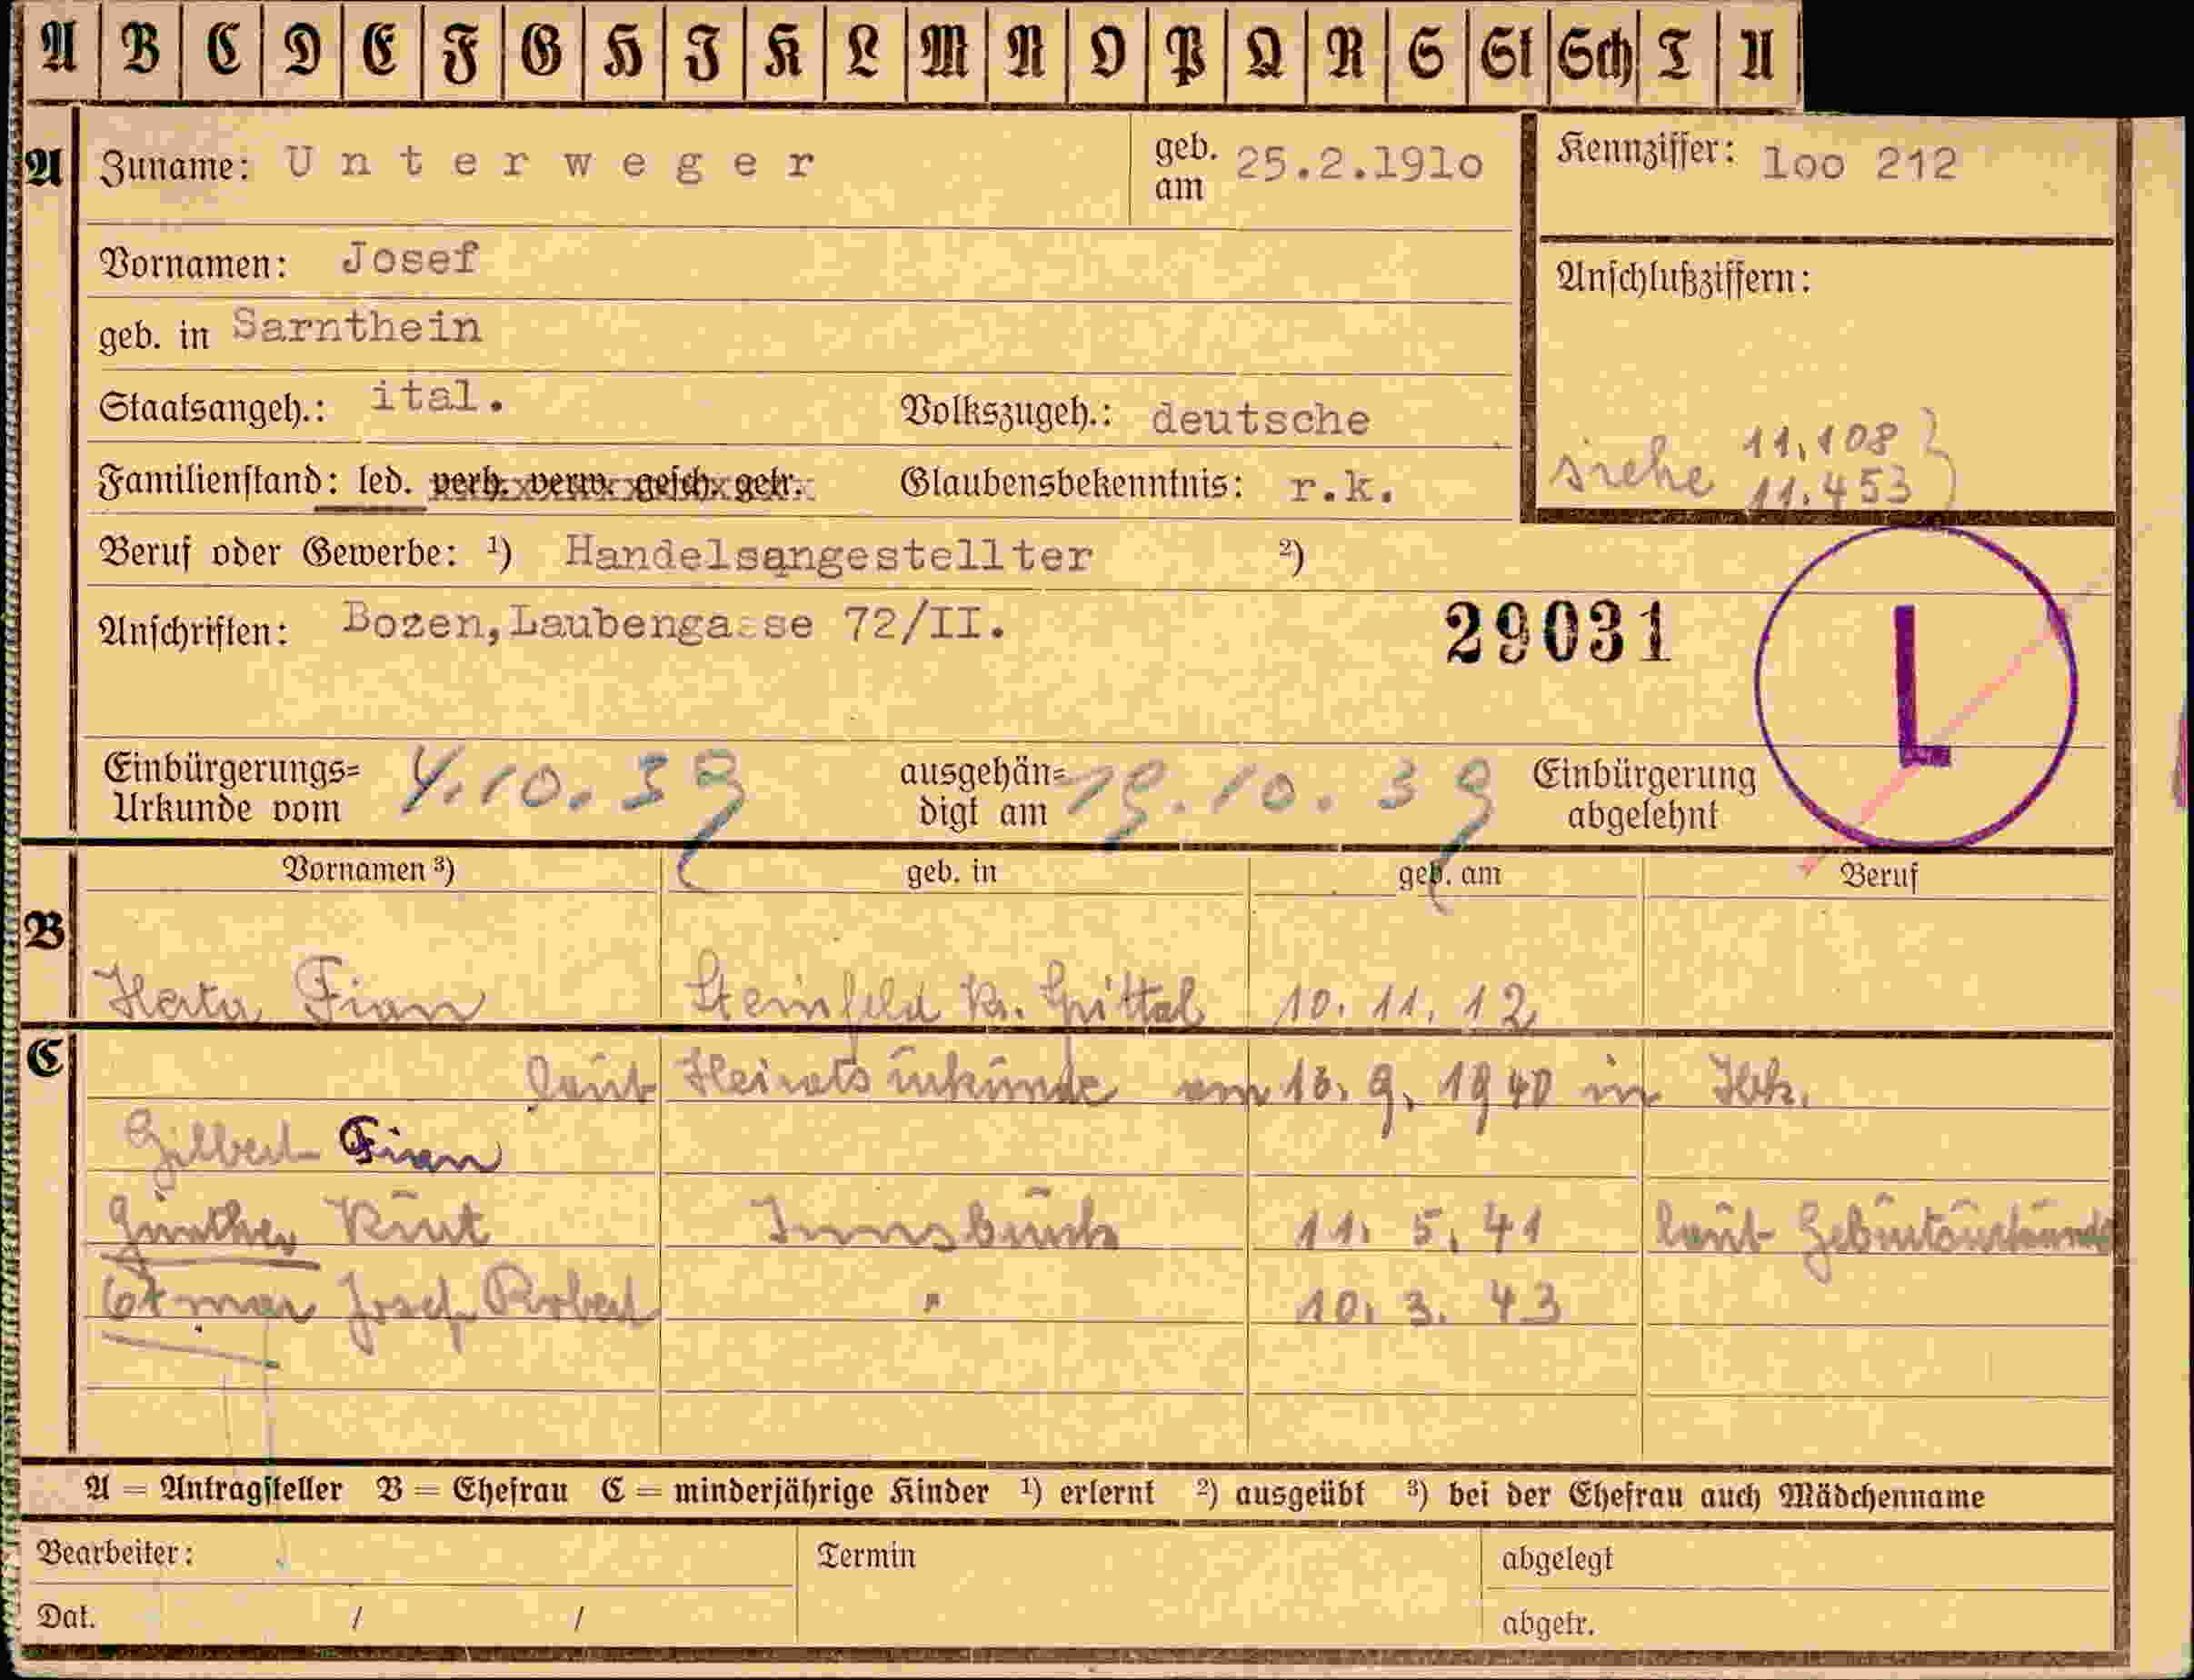 A B C D E F G H I K L M N O P Q R S St Sch T U
A Zuname: Unterweger geb. am 25.2.191o Kennziffer: 1oo 212
Vornamen: Josef
Anschlußziffern:
geb. in Sarnthein
Staatsangeh.: ital. Volkszugeh.: deutsche
siehe 11,108 }
11.453
Familienstand: led. verh. verw. gesch. getr. Glaubensbekenntnis: r.k.
Beruf oder Gewerbe: ¹) Handelsangestellter ²)
Anschriften: Bozen, Laubengasse 72/II. 29031 L
Einbürgerungs=
Urkunde vom 4.10.39 ausgehän=
digt am 19.10.39 Einbürgerung
abgelehnt
Vornamen ³) geb. in geb. am Beruf
B
Herta Fian Steinfeld Kr. Spittal 10. 11. 12
C
laut Heiratsurkunde am 16. 9. 1940 in
Gilbert Fian
Günther Kurt Innsbruck 11. 5. 41 laut Geburtsurkunde
Otmar Josef Robert " 10. 3. 43
A = Antragsteller B = Ehefrau C = minderjährige Kinder ¹) erlernt ²) ausgeübt ³) bei der Ehefrau auch Mädchenname
Bearbeiter: Termin abgelegt
Dat. / / abgetr.